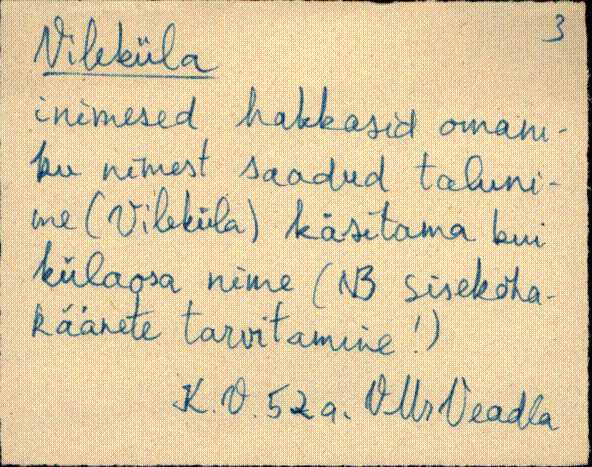 3
Vileküla
inimesed hakkasid omani-
ku nimest saadud taluni-
me (Vileküla) käsitama kui
külaosa nime (NB sisekoha-
käänete tarvitamine!)
K. V. 52 a. V Mr Veadla